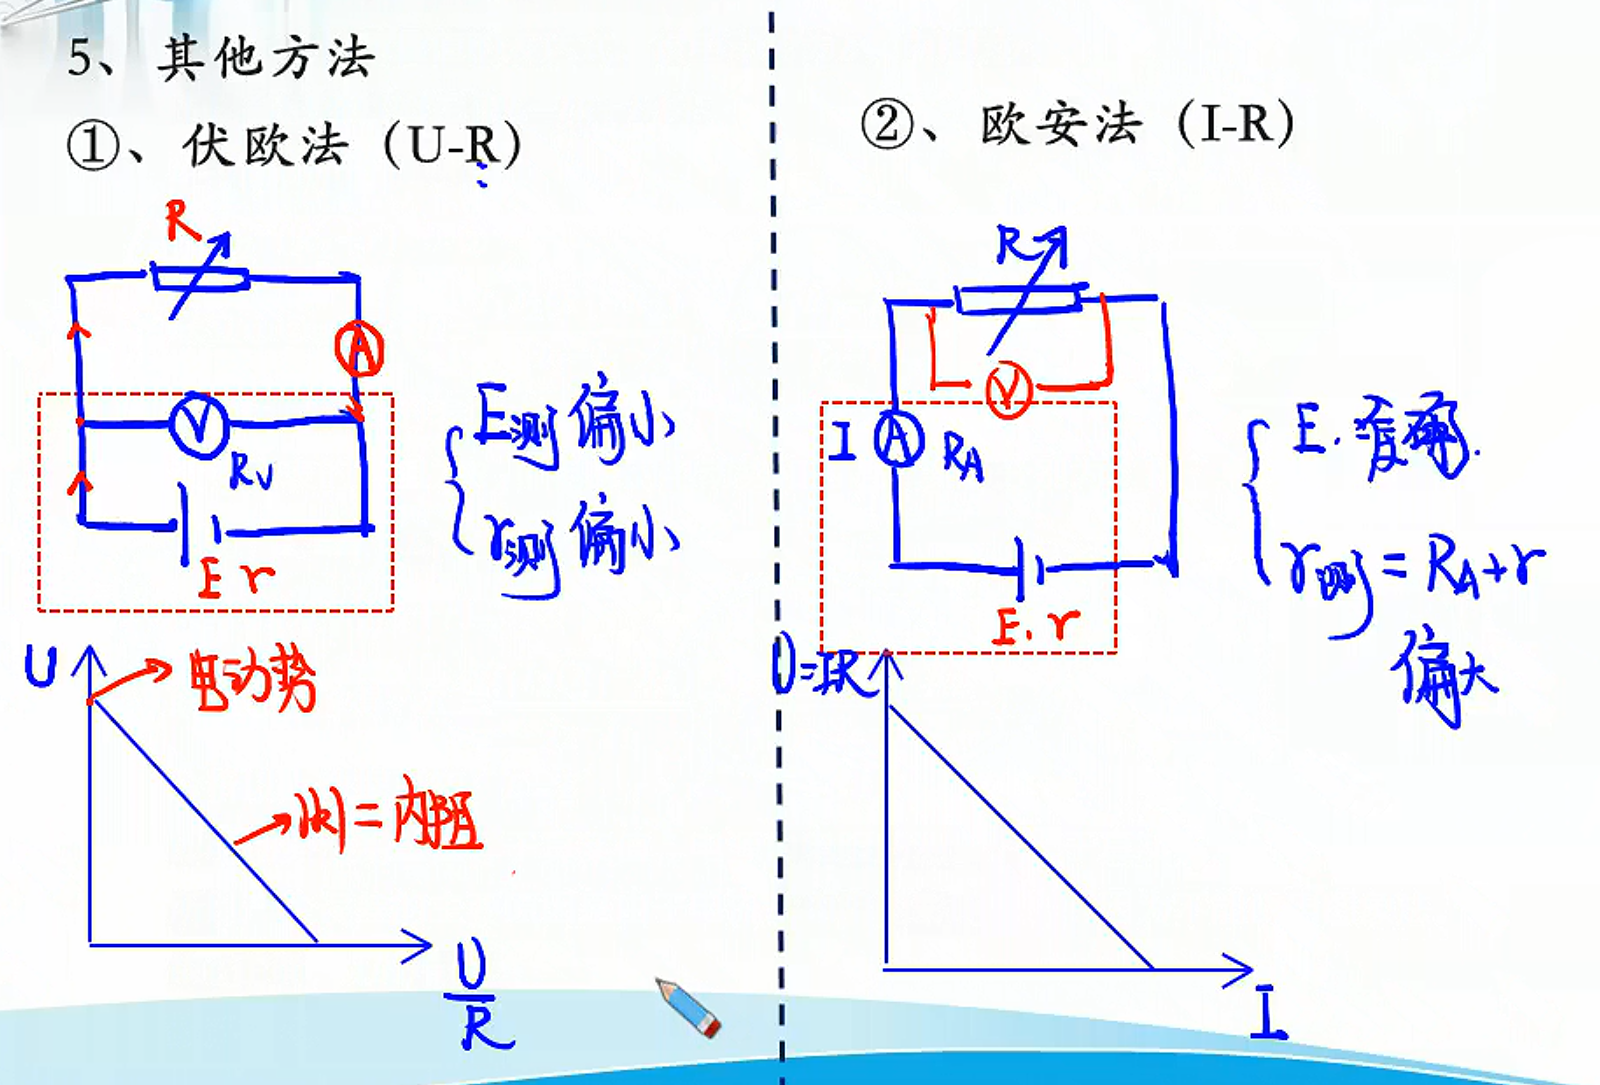 5、其他方法
①、伏欧法（U-R）
R
A
V
R_V
E r
E测偏小
r测偏小
U
电动势
|k|=内阻
U/R
②、欧安法（I-R）
R
V
I
A
R_A
E.r
E.准确.
r测=R_A+r
偏大
U=IR
I